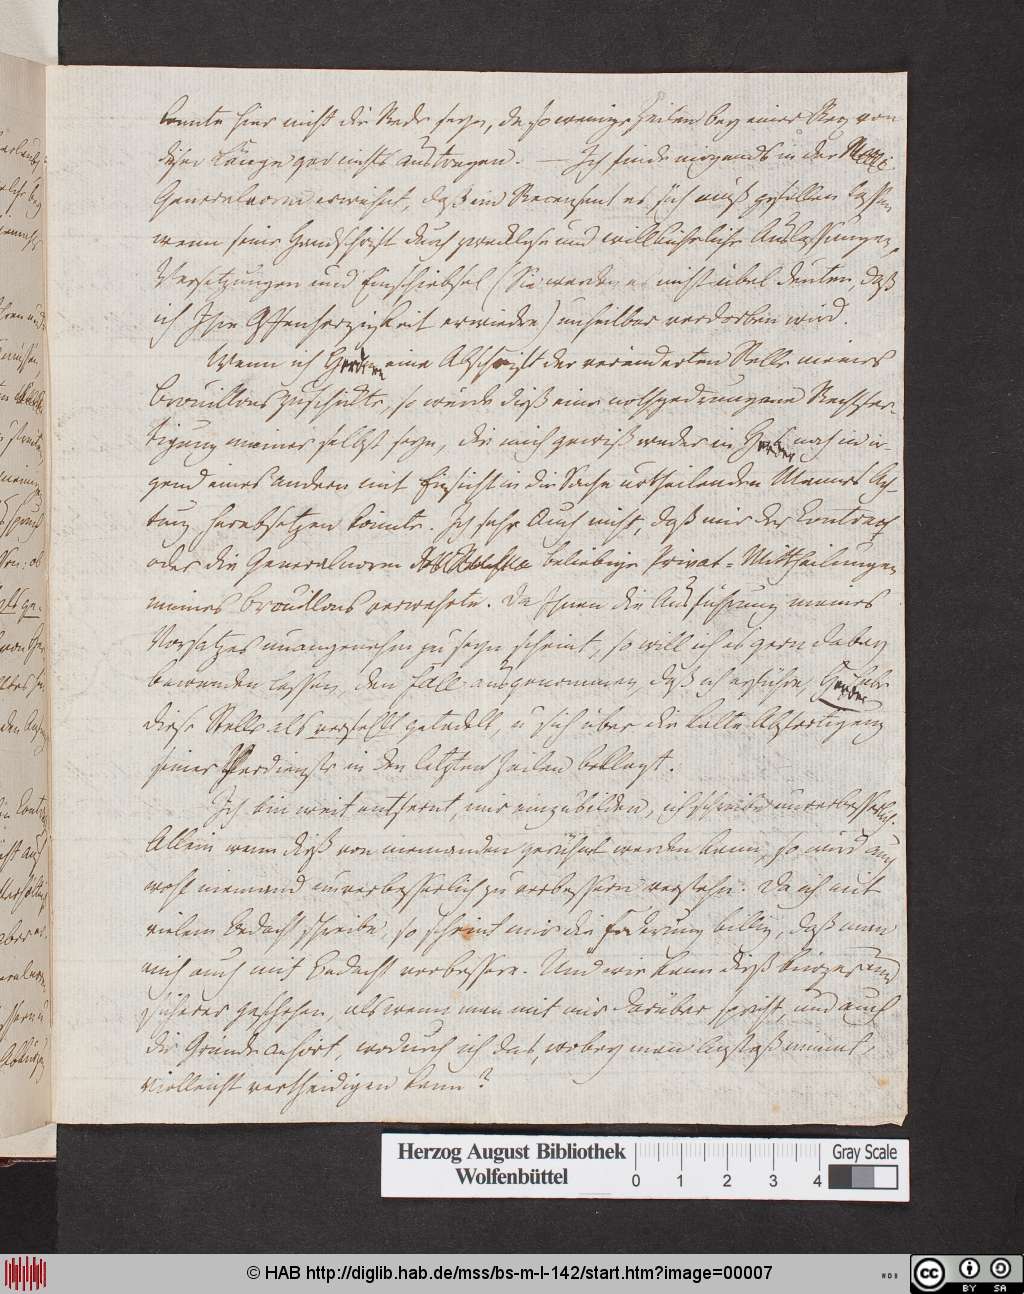 konnte hier nicht die Rede seyn, da so wenige Zeilen bey einer Rec. von
dieser Länge gar nichts austragen. — Ich finde nirgends in der
Generalnorm erwähnt, daß ein Recensent es sich muß gefallen lassen
wenn seine Handschrift durch zwecklose und willkührliche Auslassungen,
Versetzungen und Einschiebsel (Sie werden es nicht übel deuten, daß
ich Ihre Offenherzigkeit erwiedre) unheilbar verdorben wird.
Wenn ich Herdern eine Abschrift der veränderten Stelle meines
Brouillons zuschickte, so würde dieß eine nothgedrungene Rechtfer-
tigung meiner selbst seyn, die mich gewiß weder in Herders noch in ir-
gend eines andern mit Einsicht in die Sache urtheilenden Mannes Ach-
tung herabsetzen könnte. Ich sehe auch nicht, daß mir der Contract
oder die Generalnorm beliebige Privat-Mittheilungen
meines Brouillons verwehrte. Da Ihnen die Ausführung meines
Vorsatzes unangenehm zu seyn scheint, so will ich es gern dabey
bewenden lassen, den Fall ausgenommen, daß ich erführe, Herder habe
diese Stelle als verfehlt getadelt, u sich über die kalte Abfertigung
seiner Verdienste in den letzten Zeilen beklagt.
Ich bin weit entfernt, mir einzubilden, ich schreibe unverbesserlich.
Allein wenn dieß von niemanden gerühmt werden kann, so wird auch
wohl niemand unverbesserlich zu verbessern verstehn. Da ich mit
vielem Bedacht schreibe, so scheint mir die Foderung billig, daß man
mich auch mit Bedacht verbessere. Und wie kann dieß kürzer und
sichrer geschehen, als wenn man mit mir darüber spricht, und auch
die Gründe anhört, wodurch ich das, wobey man Anstoß nimmt,
vielleicht vertheidigen kann?
Herzog August Bibliothek
Wolfenbüttel
0 1 2 3 4
Gray Scale
© HAB http://diglib.hab.de/mss/bs-m-l-142/start.htm?image=00007
cc BY SA